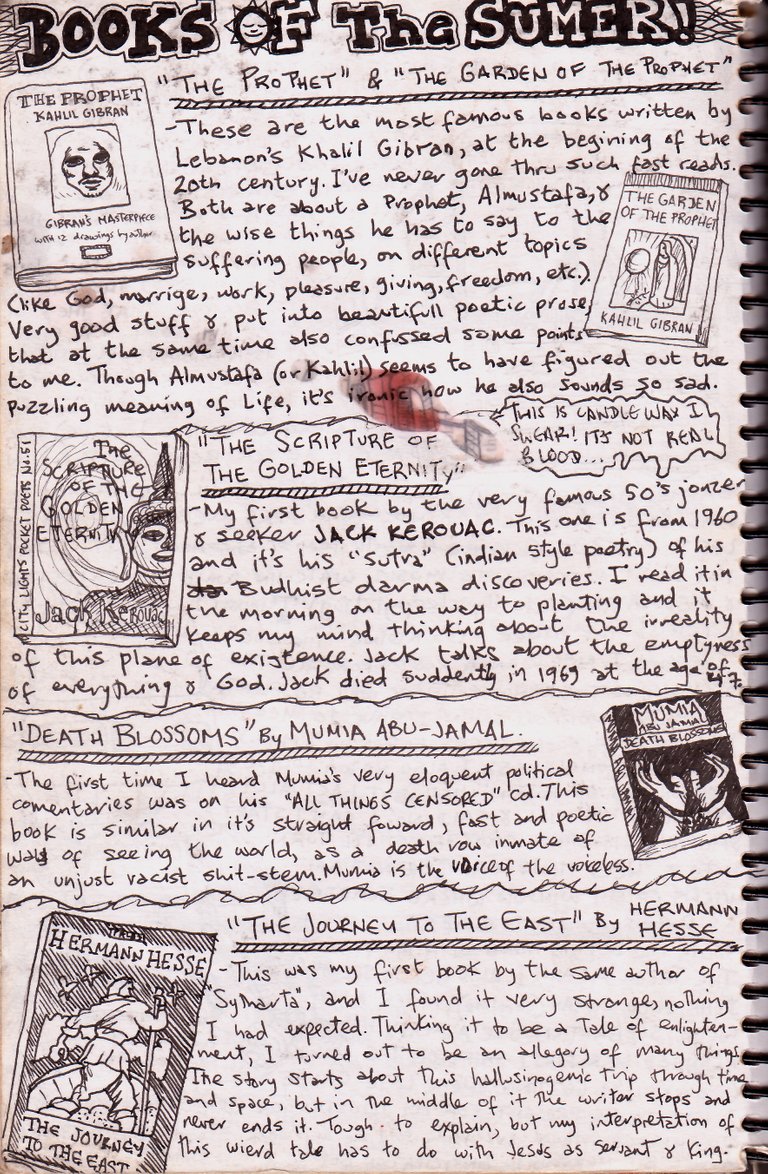 BOOKS OF The SUMER!
"THE PROPHET" & "THE GARDEN OF THE PROPHET"
THE PROPHET
KAHLIL GIBRAN
GIBRAN'S MASTERPIECE
WITH 12 drawings by author
-These are the most famous books written by
Lebanon's Khalil Gibran, at the begining of the
20th century. I've never gone thru such fast reads.
Both are about a Prophet, Almustafa, &
the wise things he has to say to the
suffering people, on different topics
(like God, marrige, work, pleasure, giving, freedom, etc.).
Very good stuff & put into beautifull poetic prose,
that at the same time also confussed some points
to me. Though Almustafa (or Kahlil) seems to have figured out the
puzzling meaning of Life, it's ironic how he also sounds so sad.
THE GARDEN
OF THE PROPHET
KAHLIL GIBRAN
THIS IS CANDLE WAX I
SWEAR! ITS NOT REAL
BLOOD...
CITY LIGHTS POCKET POETS No. 51
The
SCRIPTURE
OF THE
GOLDEN
ETERNITY
Jack Kerouac
"THE SCRIPTURE OF
THE GOLDEN ETERNITY"
-My first book by the very famous 50's
& seeker JACK KEROUAC. This one is from 1960
and it's his "sutra" (indian style poetry) of his
Budhist darma discoveries. I read it in
the morning on the way to planting and it
keeps my mind thinking about the irreality
of this plane of existence. Jack talks about the emptyness
of everything & God. Jack died suddently in 1969 at the age of 47.
"DEATH BLOSSOMS" By MUMIA ABU-JAMAL.
MUMIA
ABU JAMAL
DEATH BLOSSOMS
-The first time I heard Mumia's very eloquent political
comentaries was on his "ALL THINGS CENSORED" cd. This
book is similar in it's straight foward, fast and poetic
way of seeing the world, as a death row inmate of
an unjust racist shit-stem. Mumia is the voice of the voiceless.
HERMANN HESSE
THE JOURNEY
TO THE EAST
"THE JOURNEY TO THE EAST" By HERMANN
HESSE
-This was my first book by the same author of
and I found it very strange, nothing
I had expected. Thinking it to be a Tale of enlighten-
ment, I turned out to be an allegory of many things.
The story starts about this hallusinogenic trip through time
and space, but in the middle of it the writer stops and
never ends it. Tough to explain, but my interpretation of
this wierd tale has to do with Jesus as Servant & King.